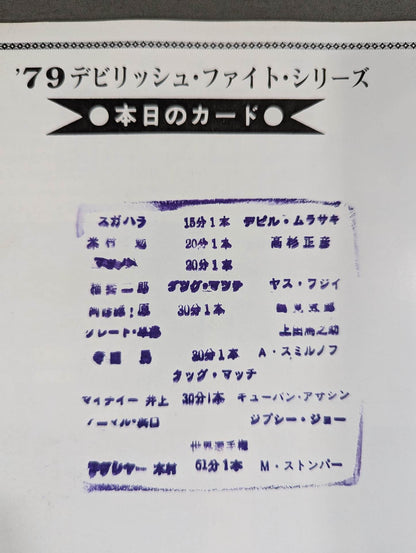 '79デビリッシュ・ファイト・シリーズ
●本日のカード●
スガハラ 15分1本 デビル・ムラサキ
米村 勉 20分1本 高杉正彦
20分1本
タッグ・マッチ ヤス・フジイ
阿修羅・原 30分1本 鶴見五郎
グレート・草津 上田馬之助
寺西 勇 30分1本 A・スミルノフ
タッグ・マッチ
マイティ 井上 30分1本 キューバン・アサシン
アニマル・浜口 ジプシー・ジョー
世界選手権
ラッシャー 木村 61分1本 M・ストンパー